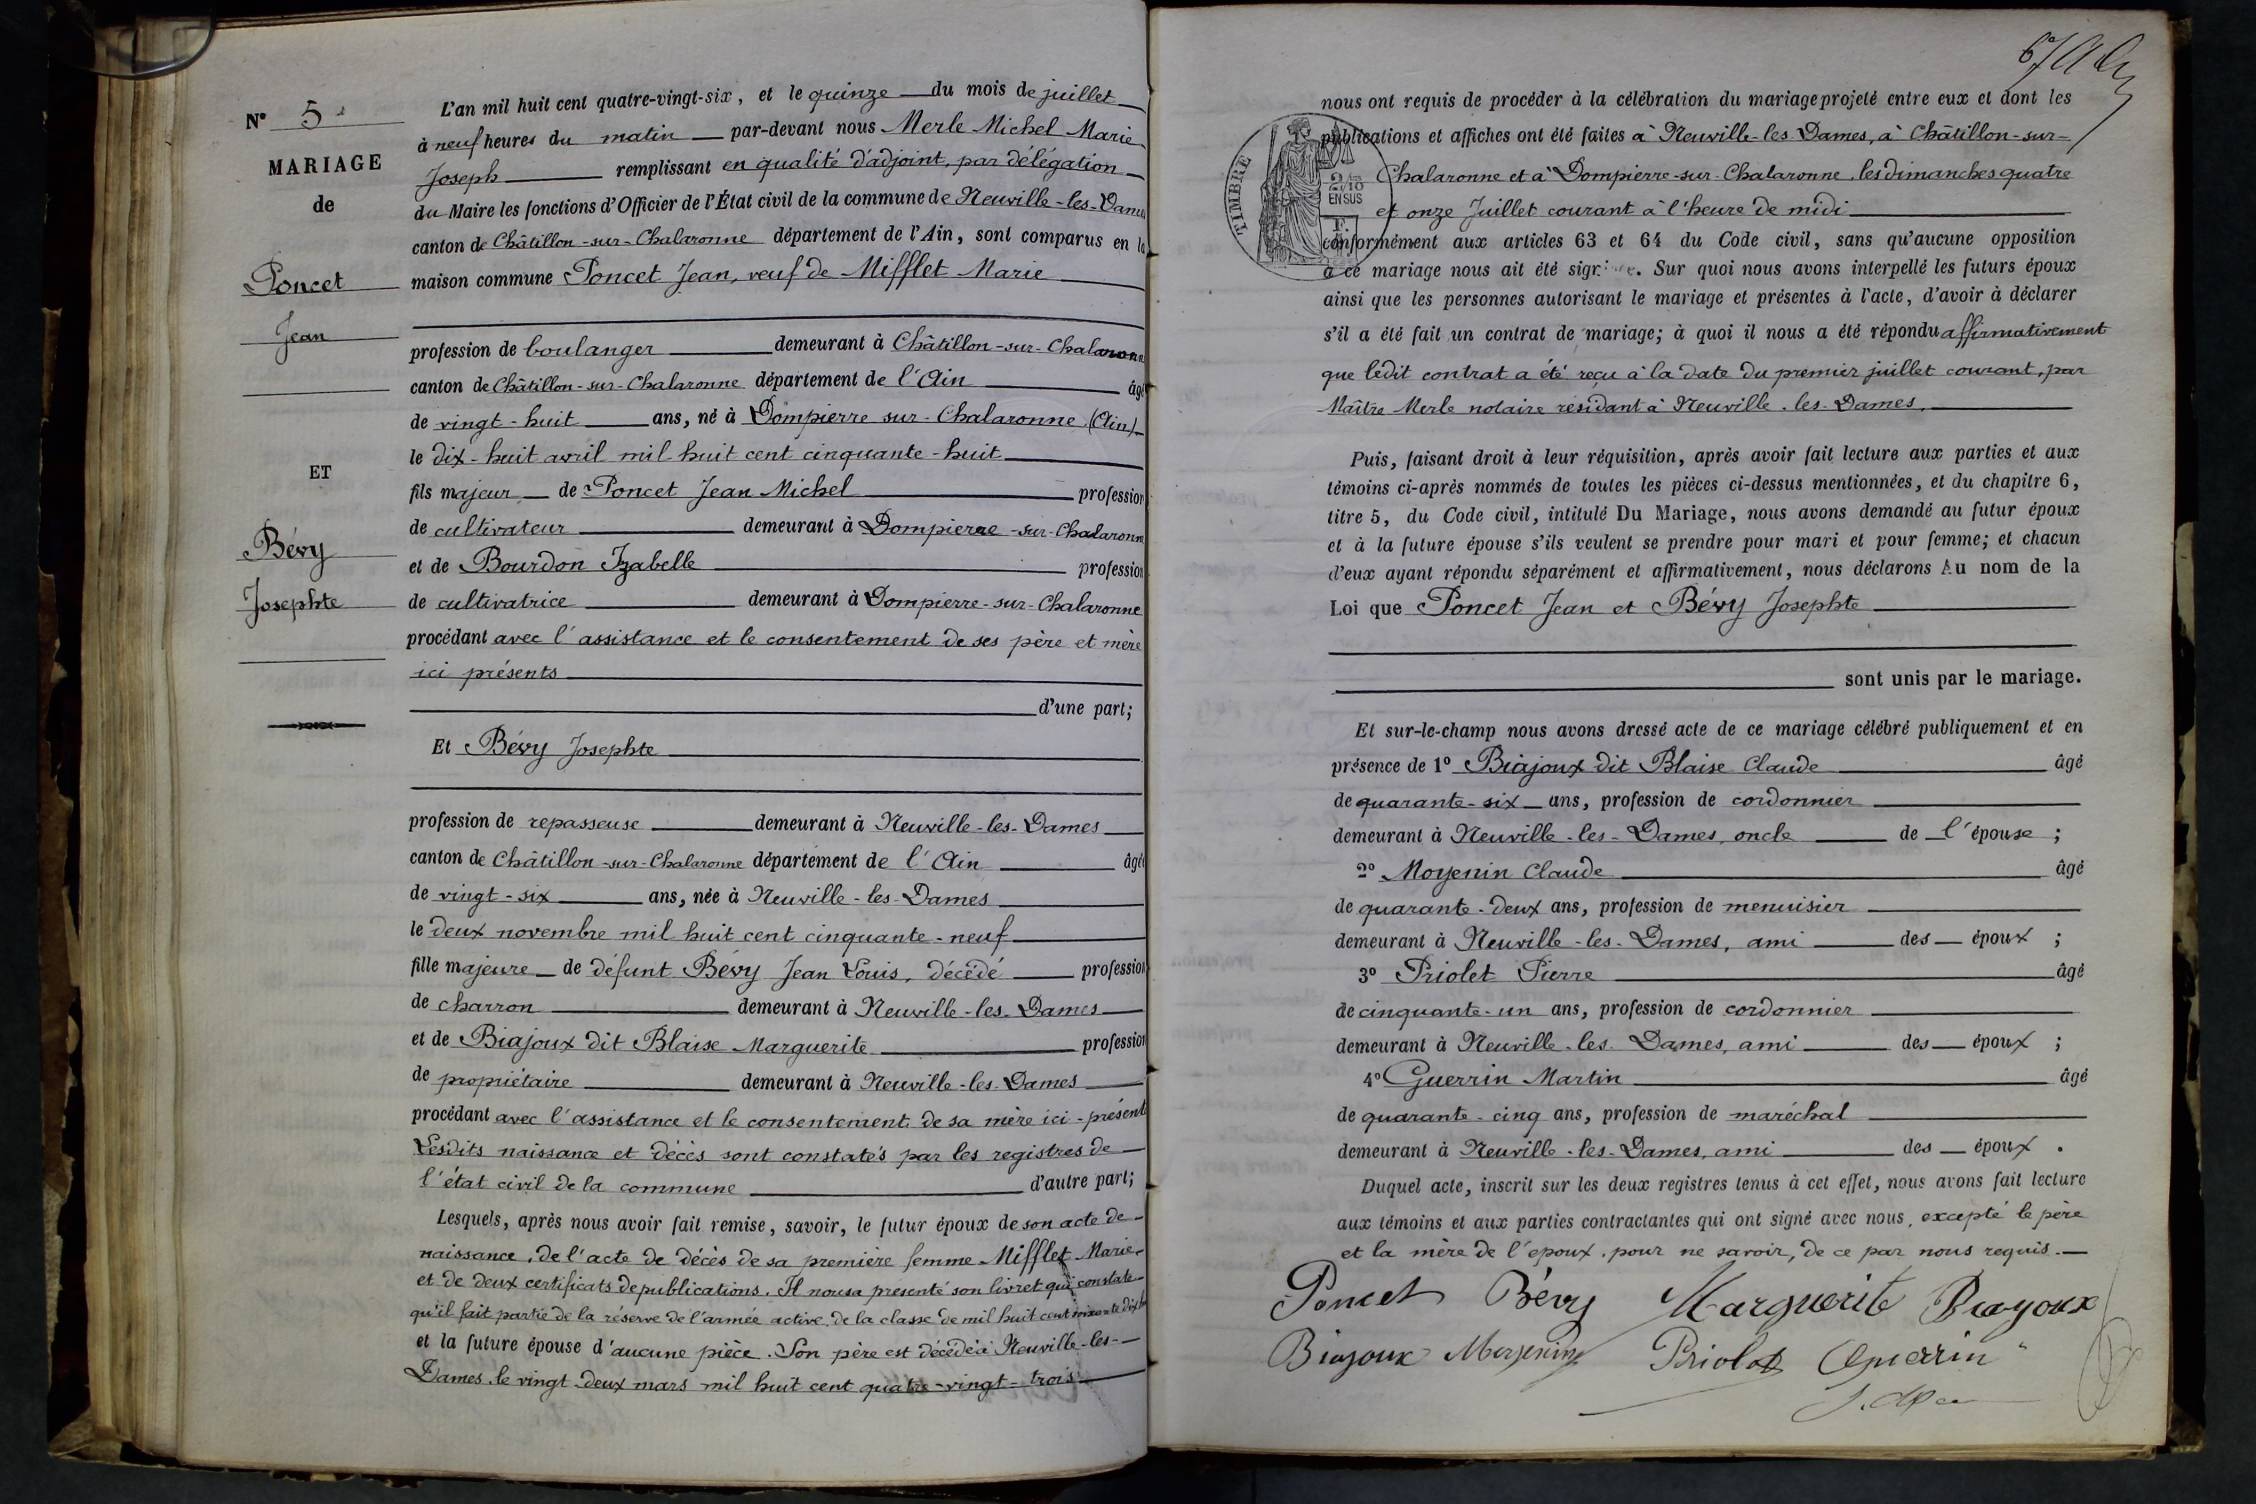 N° 5
MARIAGE
de
Poncet
Jean
ET
Bévy
Josephte
L'an mil huit cent quatre-vingt-six, et le quinze du mois de juillet
à neuf heures du matin par-devant nous Merle Michel Marie
Joseph remplissant en qualité d'adjoint, par délégation
du Maire les fonctions d'Officier de l'État civil de la commune de Neuville-les-Dames
canton de Châtillon-sur-Chalaronne département de l'Ain, sont comparus en la
maison commune Poncet Jean, veuf de Mifflet Marie
profession de boulanger demeurant à Châtillon-sur-Chalaronne
canton de Châtillon-sur-Chalaronne département de l'Ain âgé
de vingt-huit ans, né à Dompierre sur-Chalaronne (Ain)
le dix-huit avril mil huit cent cinquante-huit
fils majeur de Poncet Jean Michel profession
de cultivateur demeurant à Dompierre-sur-Chalaronne
et de Bourdon Izabelle profession
de cultivatrice demeurant à Dompierre-sur-Chalaronne
procédant avec l'assistance et le consentement de ses père et mère
ici présents
d'une part;
Et Bévy Josephte
profession de repasseuse demeurant à Neuville-les-Dames
canton de Châtillon-sur-Chalaronne département de l'Ain âgée
de vingt-six ans, née à Neuville-les-Dames
le deux novembre mil huit cent cinquante-neuf
fille majeure de défunt Bévy Jean Louis, décédé profession
de charron demeurant à Neuville-les-Dames
et de Biajoux dit Blaise Marguerite profession
de propriétaire demeurant à Neuville-les-Dames
procédant avec l'assistance et le consentement de sa mère ici-présente
Lesdits naissance et décès sont constatés par les registres de
l'état civil de la commune d'autre part;
Lesquels, après nous avoir fait remise, savoir, le futur époux de son acte de
naissance, de l'acte de décès de sa première femme Mifflet Marie
et de deux certificats de publications. Il nous a présenté son livret qui constate
qu'il fait partie de la réserve de l'armée active, de la classe de mil huit cent soixante dix huit
et la future épouse d'aucune pièce. Son père est décédé à Neuville-les-
Dames, le vingt-deux mars mil huit cent quatre-vingt-trois
67
TIMBRE
2/10
EN SUS
nous ont requis de procéder à la célébration du mariage projeté entre eux et dont les
publications et affiches ont été faites à Neuville-les-Dames, à Châtillon-sur-
Chalaronne et à Dompierre-sur-Chalaronne, les dimanches quatre
et onze Juillet courant à l'heure de midi
conformément aux articles 63 et 64 du Code civil, sans qu'aucune opposition
à ce mariage nous ait été signifiée. Sur quoi nous avons interpellé les futurs époux
ainsi que les personnes autorisant le mariage et présentes à l'acte, d'avoir à déclarer
s'il a été fait un contrat de mariage; à quoi il nous a été répondu affirmativement
que ledit contrat a été reçu à la date du premier juillet courant, par
Maître Merle notaire résidant à Neuville-les-Dames,
Puis, faisant droit à leur réquisition, après avoir fait lecture aux parties et aux
témoins ci-après nommés de toutes les pièces ci-dessus mentionnées, et du chapitre 6,
titre 5, du Code civil, intitulé Du Mariage, nous avons demandé au futur époux
et à la future épouse s'ils veulent se prendre pour mari et pour femme; et chacun
d'eux ayant répondu séparément et affirmativement, nous déclarons Au nom de la
Loi que Poncet Jean et Bévy Josephte
sont unis par le mariage.
Et sur-le-champ nous avons dressé acte de ce mariage célébré publiquement et en
présence de 1° Biajoux dit Blaise Claude âgé
de quarante-six ans, profession de cordonnier
demeurant à Neuville-les-Dames, oncle de l'épouse;
2° Moyenin Claude âgé
de quarante-deux ans, profession de menuisier
demeurant à Neuville-les-Dames, ami des époux;
3° Priolet Pierre âgé
de cinquante-un ans, profession de cordonnier
demeurant à Neuville-les-Dames, ami des époux;
4° Guerrin Martin âgé
de quarante-cinq ans, profession de maréchal
demeurant à Neuville-les-Dames, ami des époux.
Duquel acte, inscrit sur les deux registres tenus à cet effet, nous avons fait lecture
aux témoins et aux parties contractantes qui ont signé avec nous, excepté le père
et la mère de l'époux, pour ne savoir, de ce par nous requis.
Poncet Bévy Marguerite Biajoux
Biajoux Moyenin Priolet Guerrin